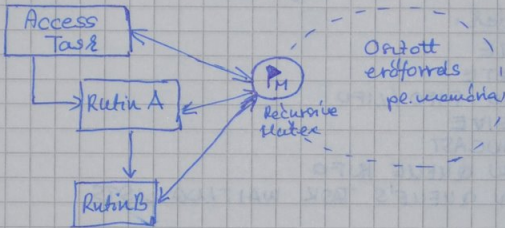 Access
Task
Rutin A
Rutin B
M
Recursive
Mutex
Osztott
erőforrás
pl. memória